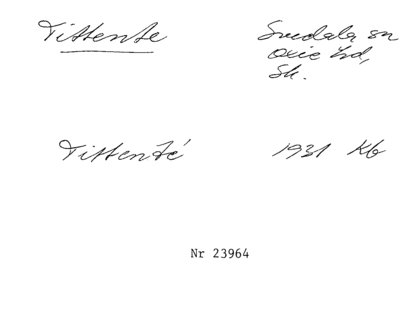 Tittente Svedala sn
Oxie hd,
Sk.
Tittenté 1931 Kb
Nr 23964